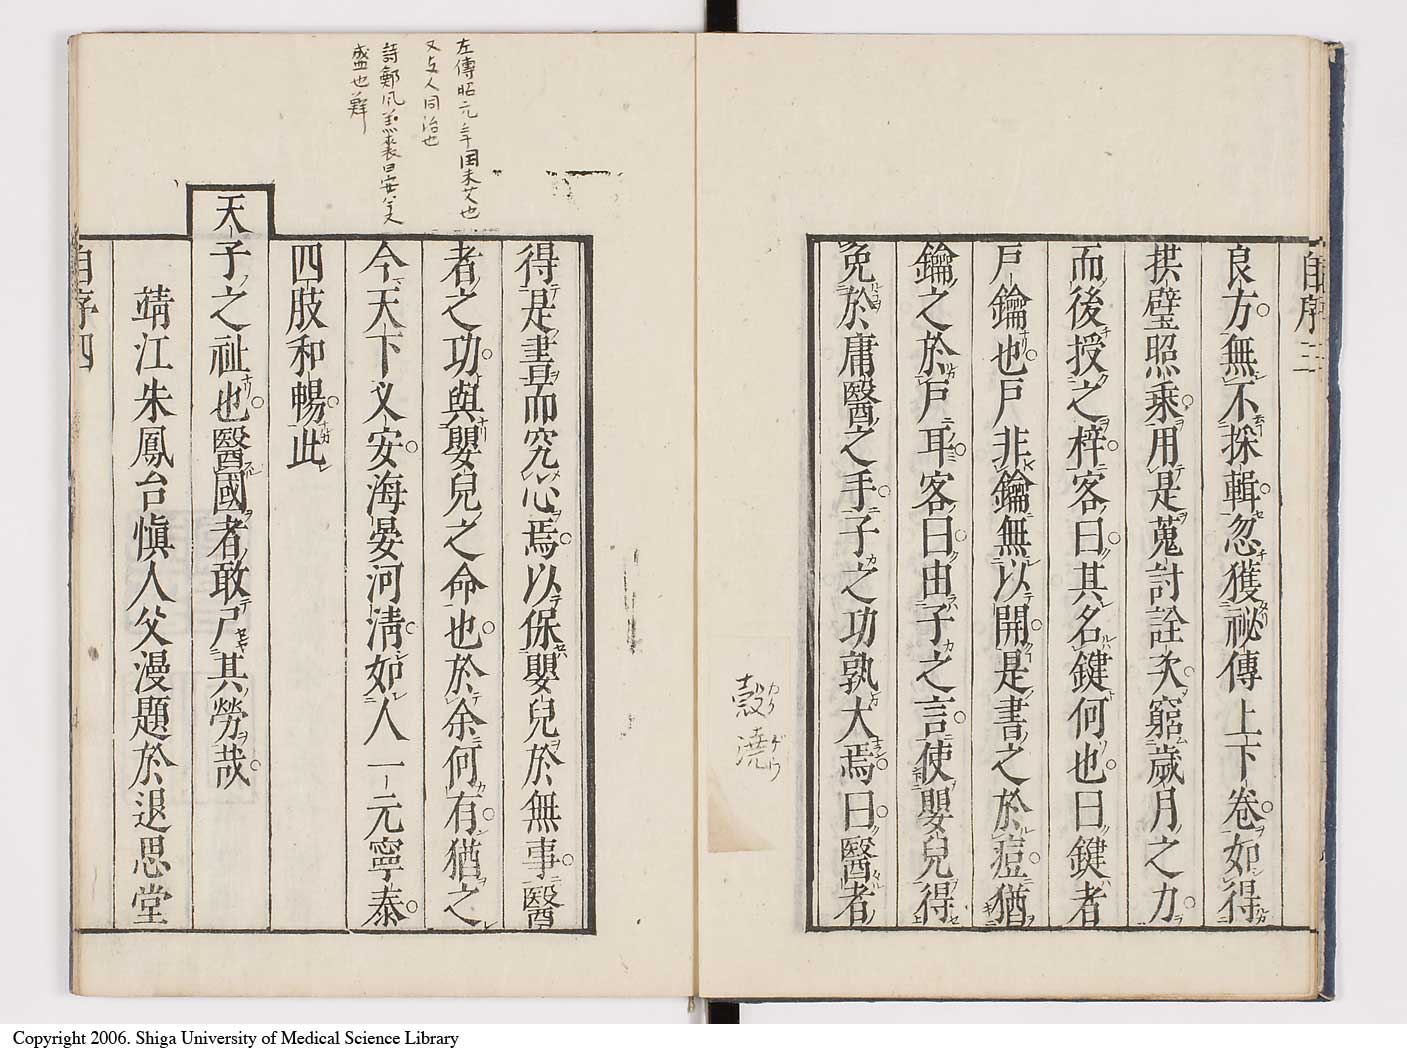 自序三
良方無不採輯忽獲祕傳上下卷如得
拱璧照乘用是蒐討詮次窮歲月之力
而後授之梓客曰其名鍵何也曰鍵者
戸鑰也戸非鑰無以開是書之於痘猶
鑰之於戸耳客曰由子之言使嬰兒得
免於庸醫之手子之功孰大焉曰醫者
縠 澆
カク ゲウ
左傳昭元年国未艾也
又与人同治也
詩鄭風羔裘晏兮
盛也鮮
得是書而究心焉以保嬰兒於無事醫
者之功與嬰兒之命也於余何有猶之
今天下乂安海晏河淸如人一元寧泰
四肢和暢此
天子之祉也醫國者敢尸其勞哉
靖江朱鳳台愼人父漫題於退思堂
自序四
Copyright 2006. Shiga University of Medical Science Library